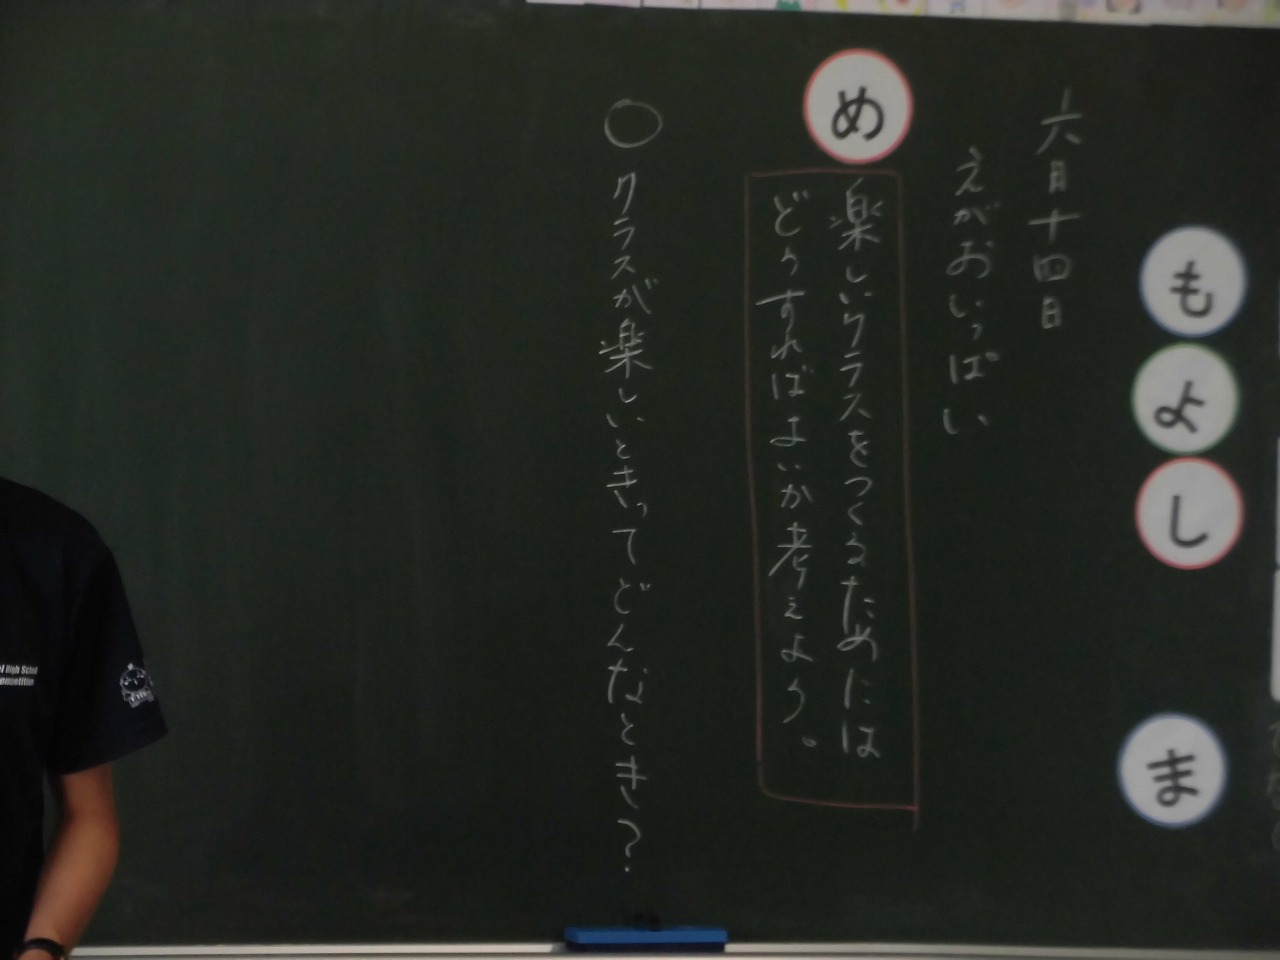 も
よ
し
ま
六月十四日
えがおいっぱい
め
楽しいクラスをつくるためには
どうすればよいか考えよう。
○クラスが楽しいときってどんなとき?
High School